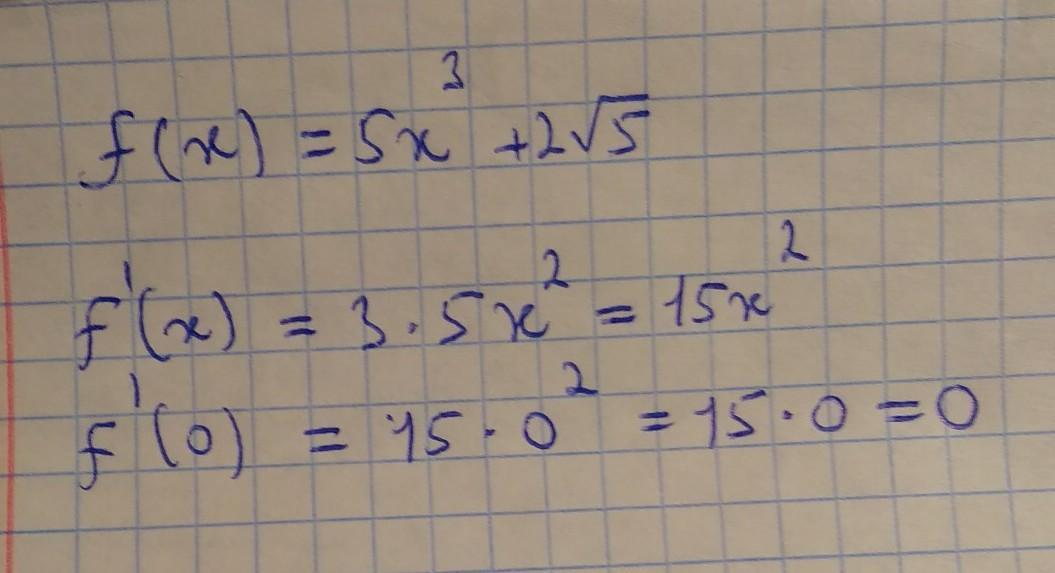 f(x) = 5x³ + 2√5
f'(x) = 3·5x² = 15x²
f'(0) = 15·0² = 15·0 = 0